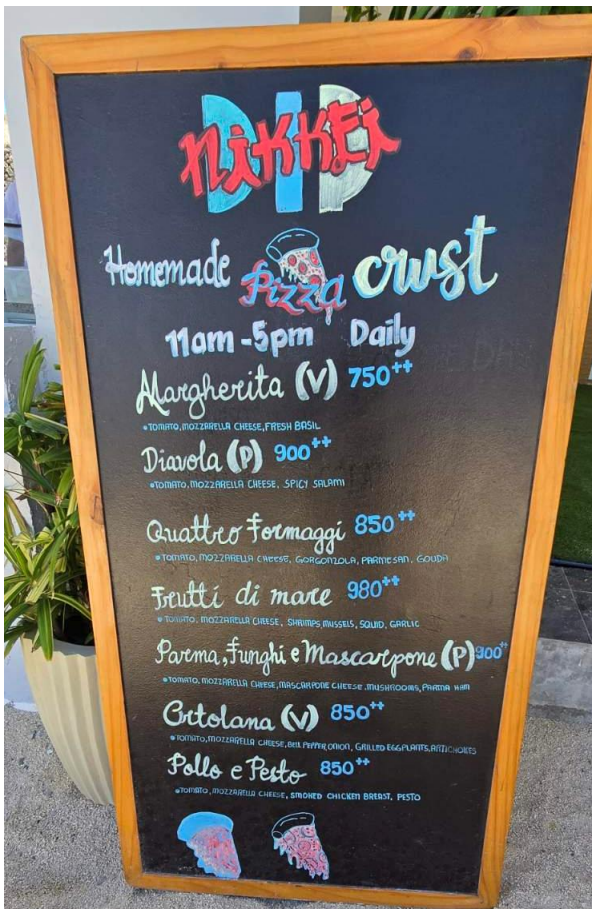 DIP
NiKKEi
Homemade Pizza crust
11am - 5pm Daily
Margherita (V) 750++
•TOMATO, MOZZARELLA CHEESE, FRESH BASIL
Diavola (P) 900++
•TOMATO, MOZZARELLA CHEESE, SPICY SALAMI
Quattro formaggi 850++
•TOMATO, MOZZARELLA CHEESE, GORGONZOLA, PARMESAN, GOUDA
Frutti di mare 980++
•TOMATO, MOZZARELLA CHEESE, SHRIMPS, MUSSELS, SQUID, GARLIC
Parma, funghi e Mascarpone (P) 900++
•TOMATO, MOZZARELLA CHEESE, MASCARPONE CHEESE, MUSHROOMS, PARMA HAM
Ortolana (V) 850++
•TOMATO, MOZZARELLA CHEESE, BELL PEPPER, ONION, GRILLED EGGPLANTS, ARTICHOKES
Pollo e Pesto 850++
•TOMATO, MOZZARELLA CHEESE, SMOKED CHICKEN BREAST, PESTO